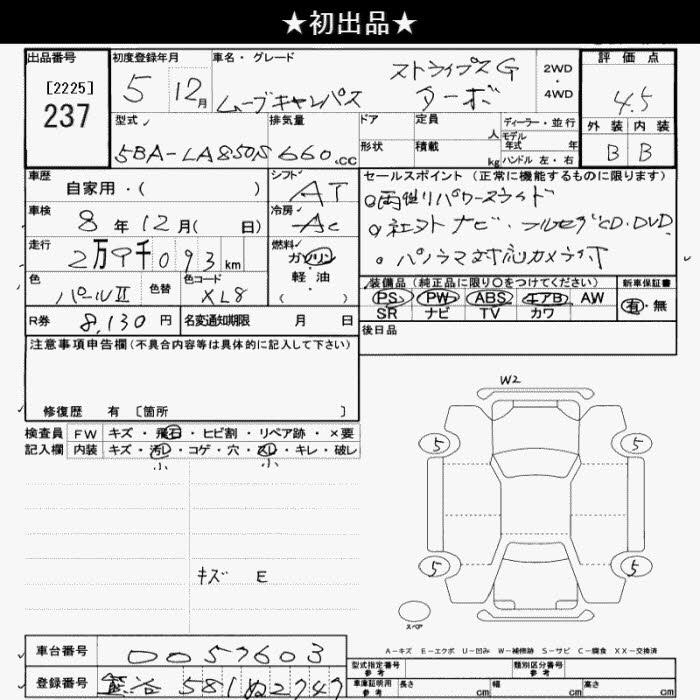 ★初出品★
出品番号
[2225]
237
初度登録年月
5 12月
車名・グレード
ムーブキャンバス
ストライプスG
ターボ
2WD
・
4WD
評価点
4.5
外装 内装
B B
型式
5BA-LA850S
排気量
660.CC
ドア
形状
定員
人
積載
kg
ディーラー・並行
モデル
年式 年
ハンドル 左・右
車歴
自家用・( )
シフト
AT
セールスポイント(正常に機能するものに限ります)
○両側パワースライド
○社外ナビ・フルセグCD・DVD
・パノラマ対応カメラ付
車検
8年12月( 日)
冷房
AC
走行
2万9千093km
燃料
ガソリン
・
軽・油
( )
色
パールII
色替
色コード
XL8
装備品(純正品に限り○をつけてください)
PS PW ABS エアB AW
SR ナビ TV カワ
新車保証書
有・無
R券
8,130円
名変通知期限 月 日
後日品
注意事項申告欄(不具合内容等は具体的に記入して下さい)
修復歴 有 〔箇所 〕
検査員
記入欄
FW キズ・飛石・ヒビ割・リペア跡・×要
内装 キズ・汚レ・コゲ・穴・スレ・キレ・破レ
小 小
キズ E
W2
5 5
5 5
スペア
A-キズ E-エクボ U-凹み W-補修跡 S-サビ C-腐食 XX-交換済
車台番号
0057603
登録番号
熊谷 581 ぬ 2747
型式指定番号
参考
類別区分番号
参考
車庫証明用
参考
長さ cm
幅 cm
高さ cm